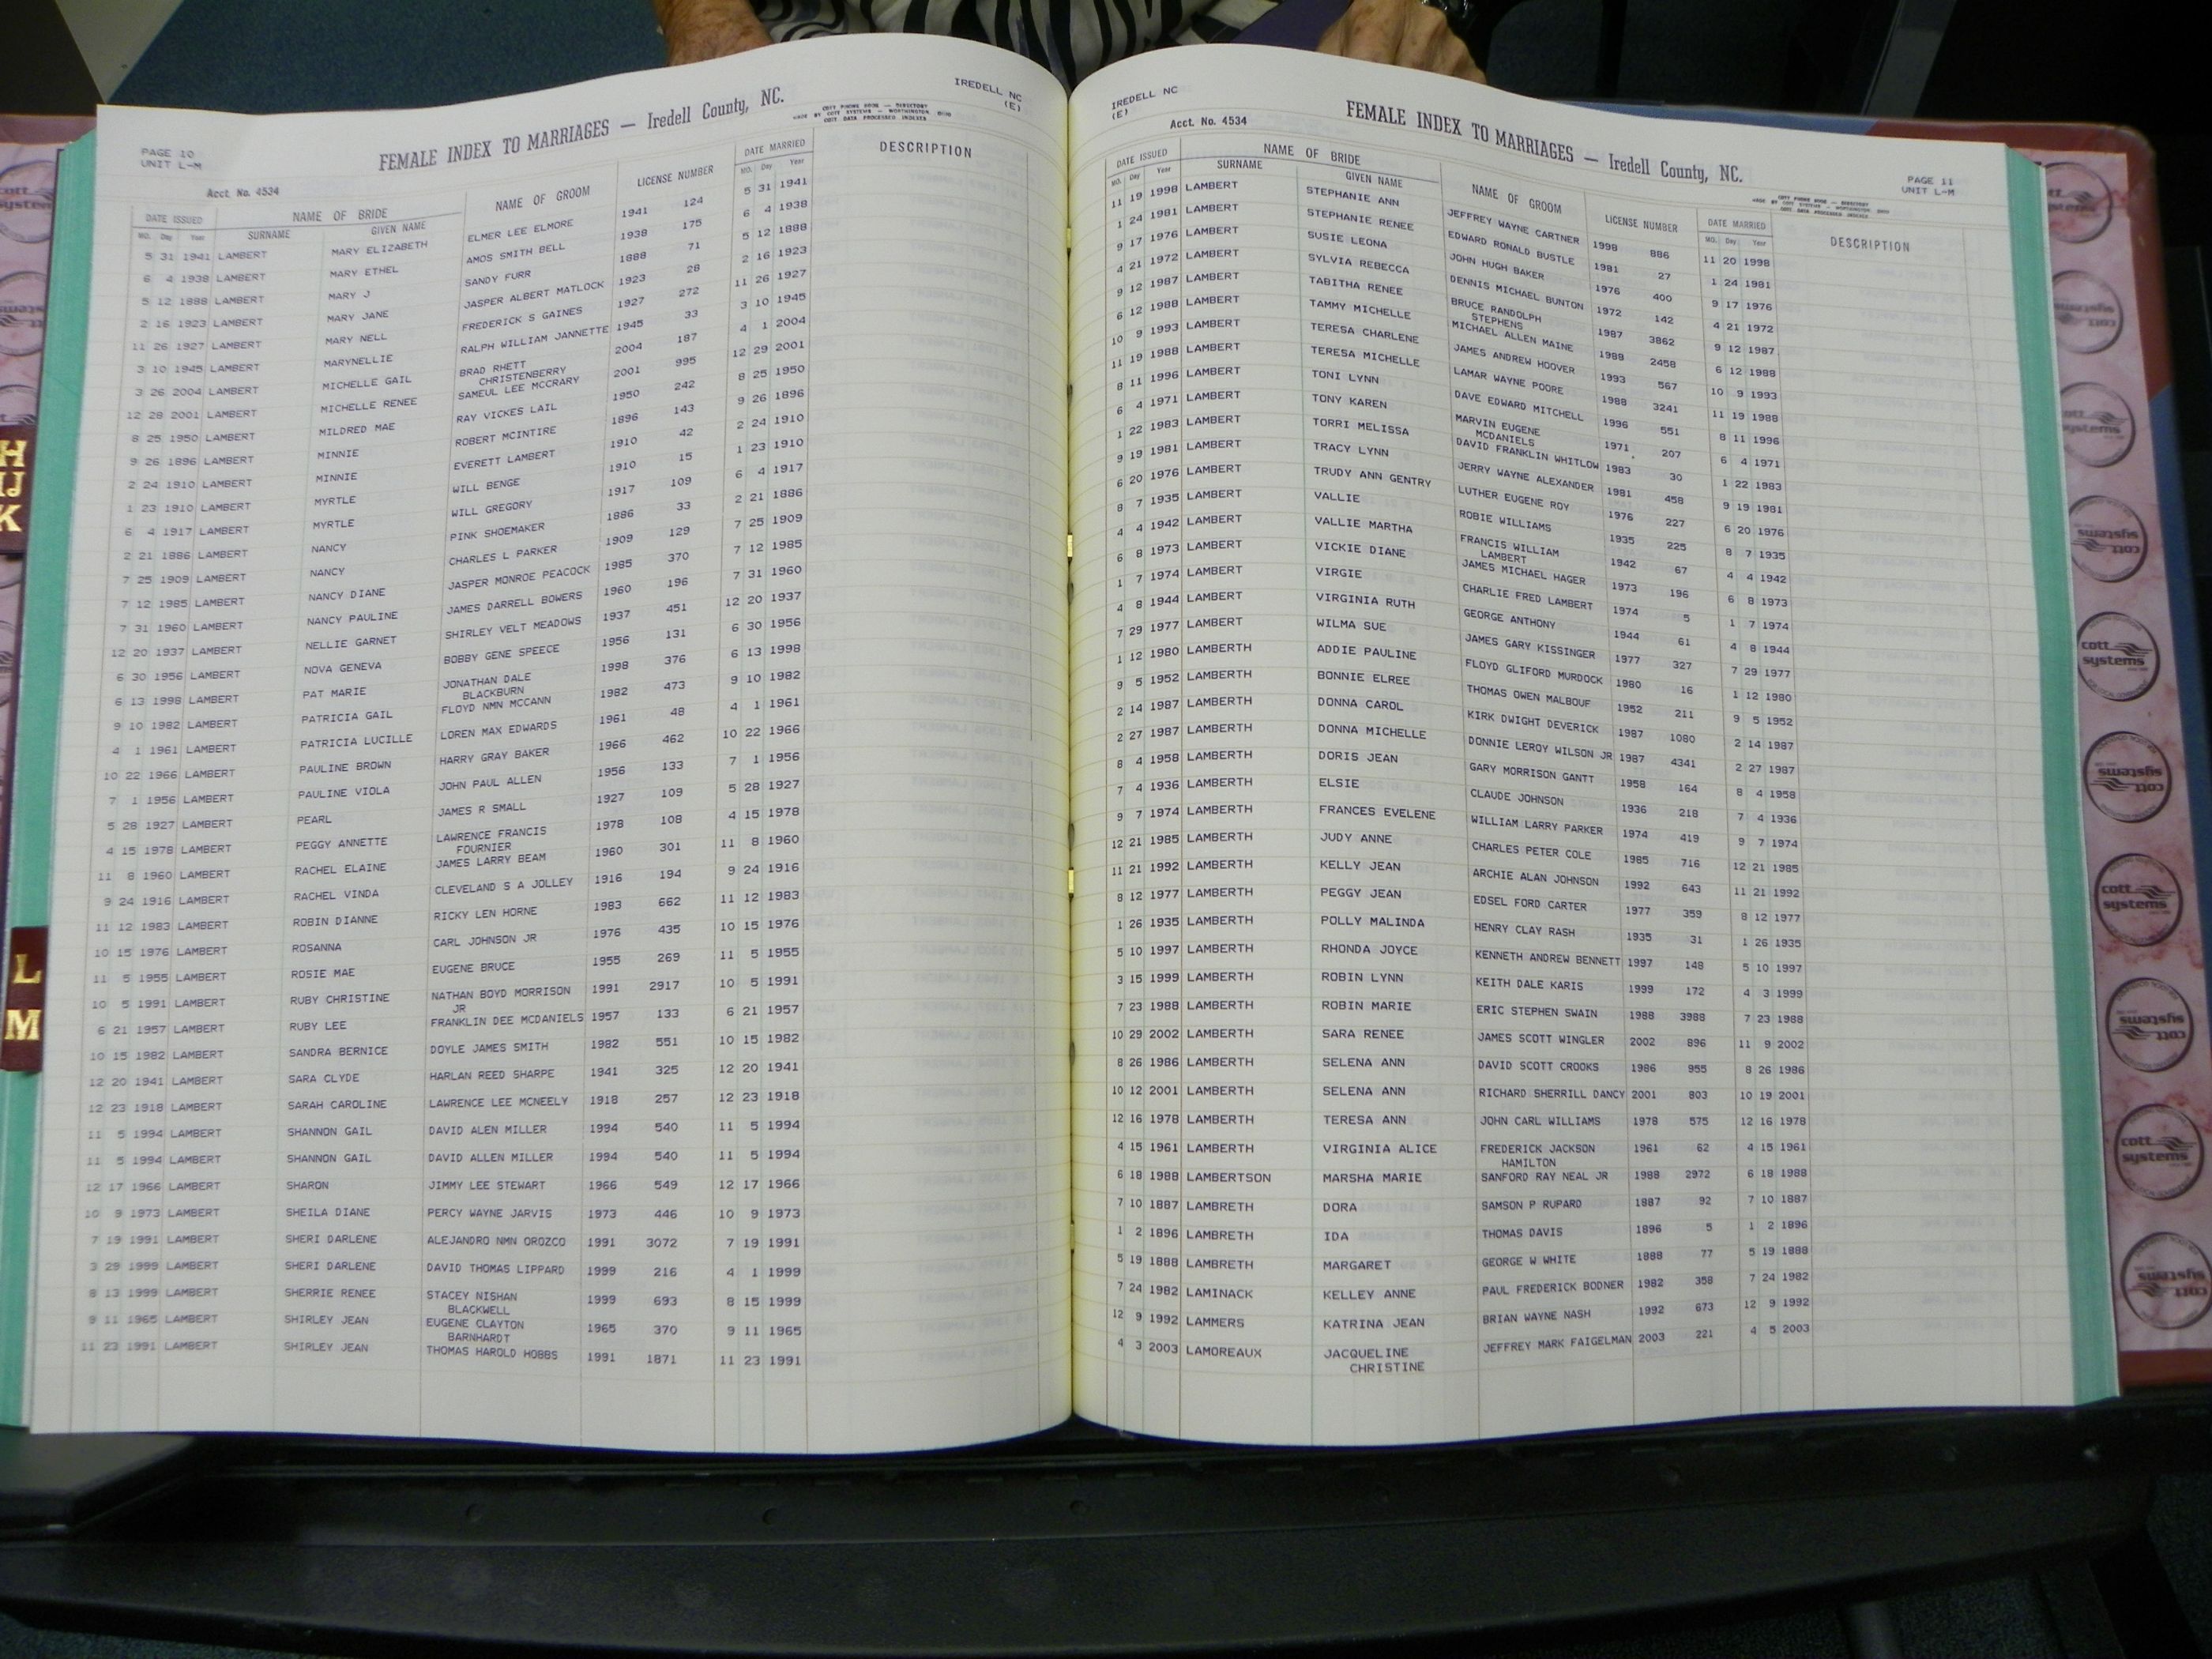 IREDELL NC
(E)
PAGE 10
UNIT L-M
FEMALE INDEX TO MARRIAGES — Iredell County, NC.
COTT PHONE BOOK — DIRECTORY
MADE BY COTT SYSTEMS — WORTHINGTON OHIO
COTT DATA PROCESSED INDEXES
Acct. No. 4534
DATE ISSUED NAME OF BRIDE NAME OF GROOM LICENSE NUMBER DATE MARRIED DESCRIPTION
MO. Day Year SURNAME GIVEN NAME MO. Day Year
5 31 1941 LAMBERT MARY ELIZABETH ELMER LEE ELMORE 1941 124 5 31 1941
6 4 1938 LAMBERT MARY ETHEL AMOS SMITH BELL 1938 175 6 4 1938
5 12 1888 LAMBERT MARY J SANDY FURR 1888 71 5 12 1888
2 16 1923 LAMBERT MARY JANE JASPER ALBERT MATLOCK 1923 28 2 16 1923
11 26 1927 LAMBERT MARY NELL FREDERICK S GAINES 1927 272 11 26 1927
3 10 1945 LAMBERT MARYNELLIE RALPH WILLIAM JANNETTE 1945 33 3 10 1945
3 26 2004 LAMBERT MICHELLE GAIL BRAD RHETT 2004 187 4 1 2004
CHRISTENBERRY
12 28 2001 LAMBERT MICHELLE RENEE SAMEUL LEE MCCRARY 2001 995 12 29 2001
8 25 1950 LAMBERT MILDRED MAE RAY VICKES LAIL 1950 242 8 25 1950
9 26 1896 LAMBERT MINNIE ROBERT MCINTIRE 1896 143 9 26 1896
2 24 1910 LAMBERT MINNIE EVERETT LAMBERT 1910 42 2 24 1910
1 23 1910 LAMBERT MYRTLE WILL BENGE 1910 15 1 23 1910
6 4 1917 LAMBERT MYRTLE WILL GREGORY 1917 109 6 4 1917
2 21 1886 LAMBERT NANCY PINK SHOEMAKER 1886 33 2 21 1886
7 25 1909 LAMBERT NANCY CHARLES L PARKER 1909 129 7 25 1909
7 12 1985 LAMBERT NANCY DIANE JASPER MONROE PEACOCK 1985 370 7 12 1985
7 31 1960 LAMBERT NANCY PAULINE JAMES DARRELL BOWERS 1960 196 7 31 1960
12 20 1937 LAMBERT NELLIE GARNET SHIRLEY VELT MEADOWS 1937 451 12 20 1937
6 30 1956 LAMBERT NOVA GENEVA BOBBY GENE SPEECE 1956 131 6 30 1956
6 13 1998 LAMBERT PAT MARIE JONATHAN DALE 1998 376 6 13 1998
BLACKBURN
9 10 1982 LAMBERT PATRICIA GAIL FLOYD NMN MCCANN 1982 473 9 10 1982
4 1 1961 LAMBERT PATRICIA LUCILLE LOREN MAX EDWARDS 1961 48 4 1 1961
10 22 1966 LAMBERT PAULINE BROWN HARRY GRAY BAKER 1966 462 10 22 1966
7 1 1956 LAMBERT PAULINE VIOLA JOHN PAUL ALLEN 1956 133 7 1 1956
5 28 1927 LAMBERT PEARL JAMES R SMALL 1927 109 5 28 1927
4 15 1978 LAMBERT PEGGY ANNETTE LAWRENCE FRANCIS 1978 108 4 15 1978
FOURNIER
11 8 1960 LAMBERT RACHEL ELAINE JAMES LARRY BEAM 1960 301 11 8 1960
9 24 1916 LAMBERT RACHEL VINDA CLEVELAND S A JOLLEY 1916 194 9 24 1916
11 12 1983 LAMBERT ROBIN DIANNE RICKY LEN HORNE 1983 662 11 12 1983
10 15 1976 LAMBERT ROSANNA CARL JOHNSON JR 1976 435 10 15 1976
11 5 1955 LAMBERT ROSIE MAE EUGENE BRUCE 1955 269 11 5 1955
10 5 1991 LAMBERT RUBY CHRISTINE NATHAN BOYD MORRISON 1991 2917 10 5 1991
JR
6 21 1957 LAMBERT RUBY LEE FRANKLIN DEE MCDANIELS 1957 133 6 21 1957
10 15 1982 LAMBERT SANDRA BERNICE DOYLE JAMES SMITH 1982 551 10 15 1982
12 20 1941 LAMBERT SARA CLYDE HARLAN REED SHARPE 1941 325 12 20 1941
12 23 1918 LAMBERT SARAH CAROLINE LAWRENCE LEE MCNEELY 1918 257 12 23 1918
11 5 1994 LAMBERT SHANNON GAIL DAVID ALEN MILLER 1994 540 11 5 1994
11 5 1994 LAMBERT SHANNON GAIL DAVID ALLEN MILLER 1994 540 11 5 1994
12 17 1966 LAMBERT SHARON JIMMY LEE STEWART 1966 549 12 17 1966
10 9 1973 LAMBERT SHEILA DIANE PERCY WAYNE JARVIS 1973 446 10 9 1973
7 19 1991 LAMBERT SHERI DARLENE ALEJANDRO NMN OROZCO 1991 3072 7 19 1991
3 29 1999 LAMBERT SHERI DARLENE DAVID THOMAS LIPPARD 1999 216 4 1 1999
8 13 1999 LAMBERT SHERRIE RENEE STACEY NISHAN 1999 693 8 15 1999
BLACKWELL
9 11 1965 LAMBERT SHIRLEY JEAN EUGENE CLAYTON 1965 370 9 11 1965
BARNHARDT
11 23 1991 LAMBERT SHIRLEY JEAN THOMAS HAROLD HOBBS 1991 1871 11 23 1991
IREDELL NC
(E)
Acct. No. 4534
FEMALE INDEX TO MARRIAGES — Iredell County, NC.
PAGE 11
UNIT L-M
COTT PHONE BOOK — DIRECTORY
MADE BY COTT SYSTEMS — WORTHINGTON OHIO
COTT DATA PROCESSED INDEXES
DATE ISSUED NAME OF BRIDE NAME OF GROOM LICENSE NUMBER DATE MARRIED DESCRIPTION
MO. Day Year SURNAME GIVEN NAME MO. Day Year
11 19 1998 LAMBERT STEPHANIE ANN JEFFREY WAYNE CARTNER 1998 886 11 20 1998
1 24 1981 LAMBERT STEPHANIE RENEE EDWARD RONALD BUSTLE 1981 27 1 24 1981
9 17 1976 LAMBERT SUSIE LEONA JOHN HUGH BAKER 1976 400 9 17 1976
4 21 1972 LAMBERT SYLVIA REBECCA DENNIS MICHAEL BUNTON 1972 142 4 21 1972
9 12 1987 LAMBERT TABITHA RENEE BRUCE RANDOLPH 1987 3862 9 12 1987
STEPHENS
6 12 1988 LAMBERT TAMMY MICHELLE MICHAEL ALLEN MAINE 1988 2458 6 12 1988
10 9 1993 LAMBERT TERESA CHARLENE JAMES ANDREW HOOVER 1993 567 10 9 1993
11 19 1988 LAMBERT TERESA MICHELLE LAMAR WAYNE POORE 1988 3241 11 19 1988
8 11 1996 LAMBERT TONI LYNN DAVE EDWARD MITCHELL 1996 551 8 11 1996
6 4 1971 LAMBERT TONY KAREN MARVIN EUGENE 1971 207 6 4 1971
MCDANIELS
1 22 1983 LAMBERT TORRI MELISSA DAVID FRANKLIN WHITLOW 1983 30 1 22 1983
9 19 1981 LAMBERT TRACY LYNN JERRY WAYNE ALEXANDER 1981 458 9 19 1981
6 20 1976 LAMBERT TRUDY ANN GENTRY LUTHER EUGENE ROY 1976 227 6 20 1976
8 7 1935 LAMBERT VALLIE ROBIE WILLIAMS 1935 225 8 7 1935
4 4 1942 LAMBERT VALLIE MARTHA FRANCIS WILLIAM 1942 67 4 4 1942
LAMBERT
6 8 1973 LAMBERT VICKIE DIANE JAMES MICHAEL HAGER 1973 196 6 8 1973
1 7 1974 LAMBERT VIRGIE CHARLIE FRED LAMBERT 1974 5 1 7 1974
4 8 1944 LAMBERT VIRGINIA RUTH GEORGE ANTHONY 1944 61 4 8 1944
7 29 1977 LAMBERT WILMA SUE JAMES GARY KISSINGER 1977 327 7 29 1977
1 12 1980 LAMBERTH ADDIE PAULINE FLOYD GLIFORD MURDOCK 1980 16 1 12 1980
9 5 1952 LAMBERTH BONNIE ELREE THOMAS OWEN MALBOUF 1952 211 9 5 1952
2 14 1987 LAMBERTH DONNA CAROL KIRK DWIGHT DEVERICK 1987 1080 2 14 1987
2 27 1987 LAMBERTH DONNA MICHELLE DONNIE LEROY WILSON JR 1987 4341 2 27 1987
8 4 1958 LAMBERTH DORIS JEAN GARY MORRISON GANTT 1958 164 8 4 1958
7 4 1936 LAMBERTH ELSIE CLAUDE JOHNSON 1936 218 7 4 1936
9 7 1974 LAMBERTH FRANCES EVELENE WILLIAM LARRY PARKER 1974 419 9 7 1974
12 21 1985 LAMBERTH JUDY ANNE CHARLES PETER COLE 1985 716 12 21 1985
11 21 1992 LAMBERTH KELLY JEAN ARCHIE ALAN JOHNSON 1992 643 11 21 1992
8 12 1977 LAMBERTH PEGGY JEAN EDSEL FORD CARTER 1977 359 8 12 1977
1 26 1935 LAMBERTH POLLY MALINDA HENRY CLAY RASH 1935 31 1 26 1935
5 10 1997 LAMBERTH RHONDA JOYCE KENNETH ANDREW BENNETT 1997 148 5 10 1997
3 15 1999 LAMBERTH ROBIN LYNN KEITH DALE KARIS 1999 172 4 3 1999
7 23 1988 LAMBERTH ROBIN MARIE ERIC STEPHEN SWAIN 1988 3988 7 23 1988
10 29 2002 LAMBERTH SARA RENEE JAMES SCOTT WINGLER 2002 896 11 9 2002
8 26 1986 LAMBERTH SELENA ANN DAVID SCOTT CROOKS 1986 955 8 26 1986
10 12 2001 LAMBERTH SELENA ANN RICHARD SHERRILL DANCY 2001 803 10 19 2001
12 16 1978 LAMBERTH TERESA ANN JOHN CARL WILLIAMS 1978 575 12 16 1978
4 15 1961 LAMBERTH VIRGINIA ALICE FREDERICK JACKSON 1961 62 4 15 1961
HAMILTON
6 18 1988 LAMBERTSON MARSHA MARIE SANFORD RAY NEAL JR 1988 2972 6 18 1988
7 10 1887 LAMBRETH DORA SAMSON P RUPARD 1887 92 7 10 1887
1 2 1896 LAMBRETH IDA THOMAS DAVIS 1896 5 1 2 1896
5 19 1888 LAMBRETH MARGARET GEORGE W WHITE 1888 77 5 19 1888
7 24 1982 LAMINACK KELLEY ANNE PAUL FREDERICK BODNER 1982 358 7 24 1982
12 9 1992 LAMMERS KATRINA JEAN BRIAN WAYNE NASH 1992 673 12 9 1992
4 3 2003 LAMOREAUX JACQUELINE JEFFREY MARK FAIGELMAN 2003 221 4 5 2003
CHRISTINE
H
IJ
K
L
M
cott
systems
cott
systems
cott
systems
cott
systems
cott
systems